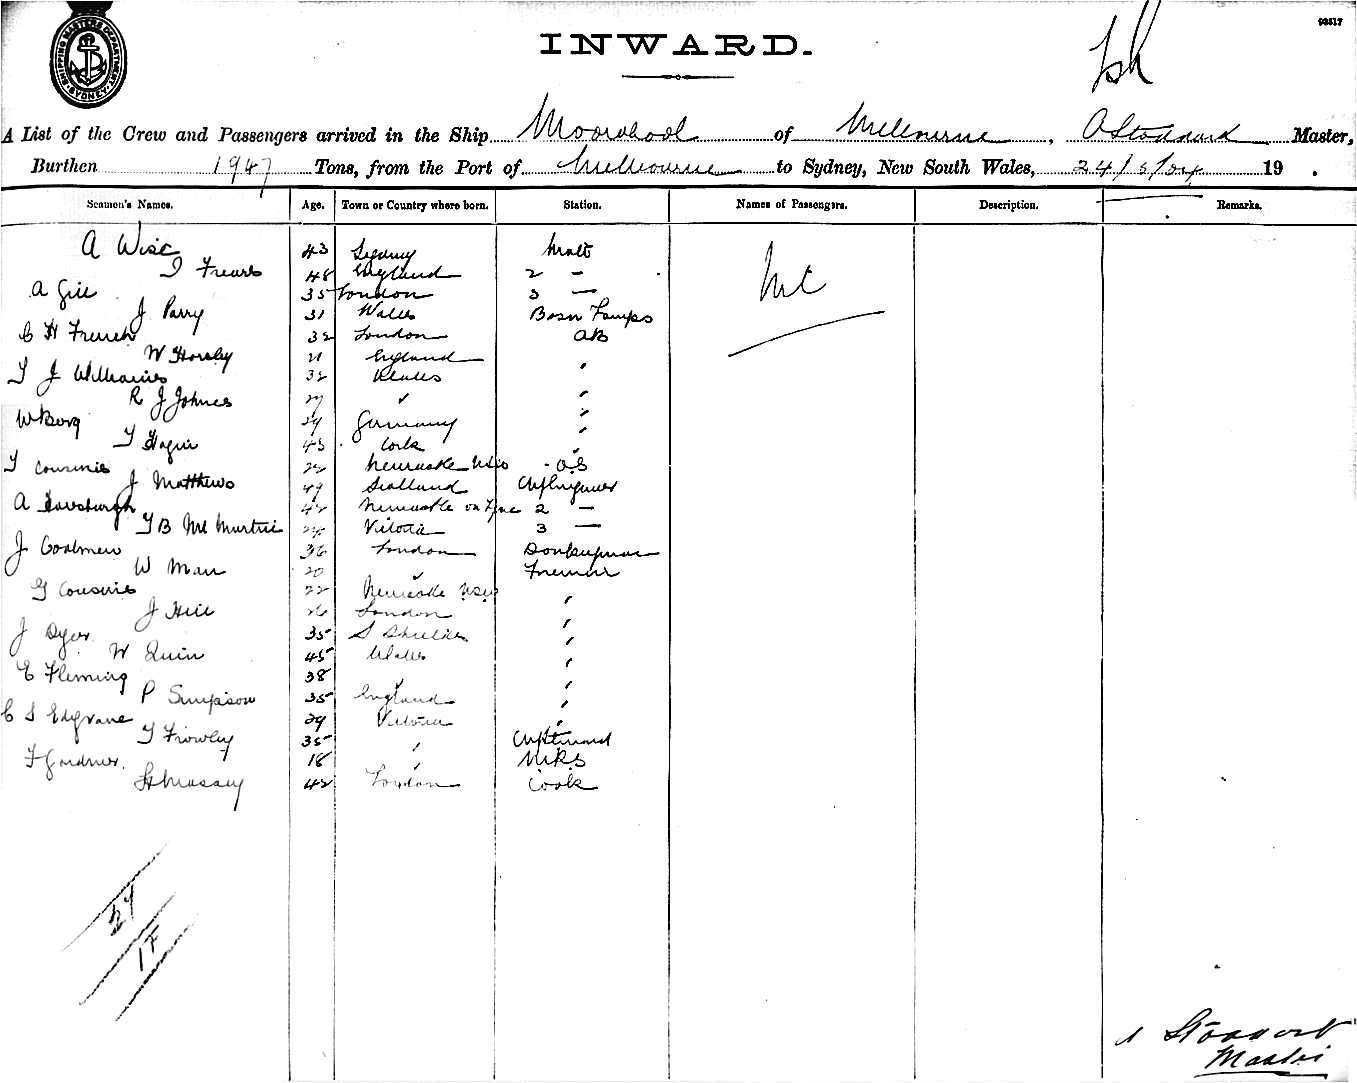 93517
SHIPPING MASTERS DEPARTMENT SYDNEY
INWARD.
A List of the Crew and Passengers arrived in the Ship Moorabool of Melbourne, A Stoddart Master,
Burthen 1947 Tons, from the Port of Melbourne to Sydney, New South Wales, 24/5/04 19 .
Seamen's Names. Age. Town or Country where born. Station. Names of Passengers. Description. Remarks.
A Wise 43 Sydney Mate
48 England 2 —
A Gill 35 London 3 —
J Parry 31 Wales Bosn Lamps
C H French 32 London AB
W Horsley 21 England "
T J Williams 32 Wales "
R J Johnes 27 " "
W Borg 29 Germany "
T 43 Cork "
T Cousins 22 Newcastle NSW OS
J Matthews 49 Scotland Chf Engineer
A 42 Newcastle on Tyne 2 —
T B Mc Martin 24 Victoria 3 —
J Coolmew 36 London Donkeyman
W Man 20 " Fireman
G Cousins 22 Newcastle NSW "
J Hill 26 London "
J Dyer 35 S Shields "
W Quin 45 Wales "
E Fleming 38 " "
P Simpson 35 England "
C S Edgrane 29 Victoria "
T Frowley 35 " Chf Steward
F Gardner 18 " MRS
H Massey 42 London Cook
Nil
27
1F
A Stoddart
Master